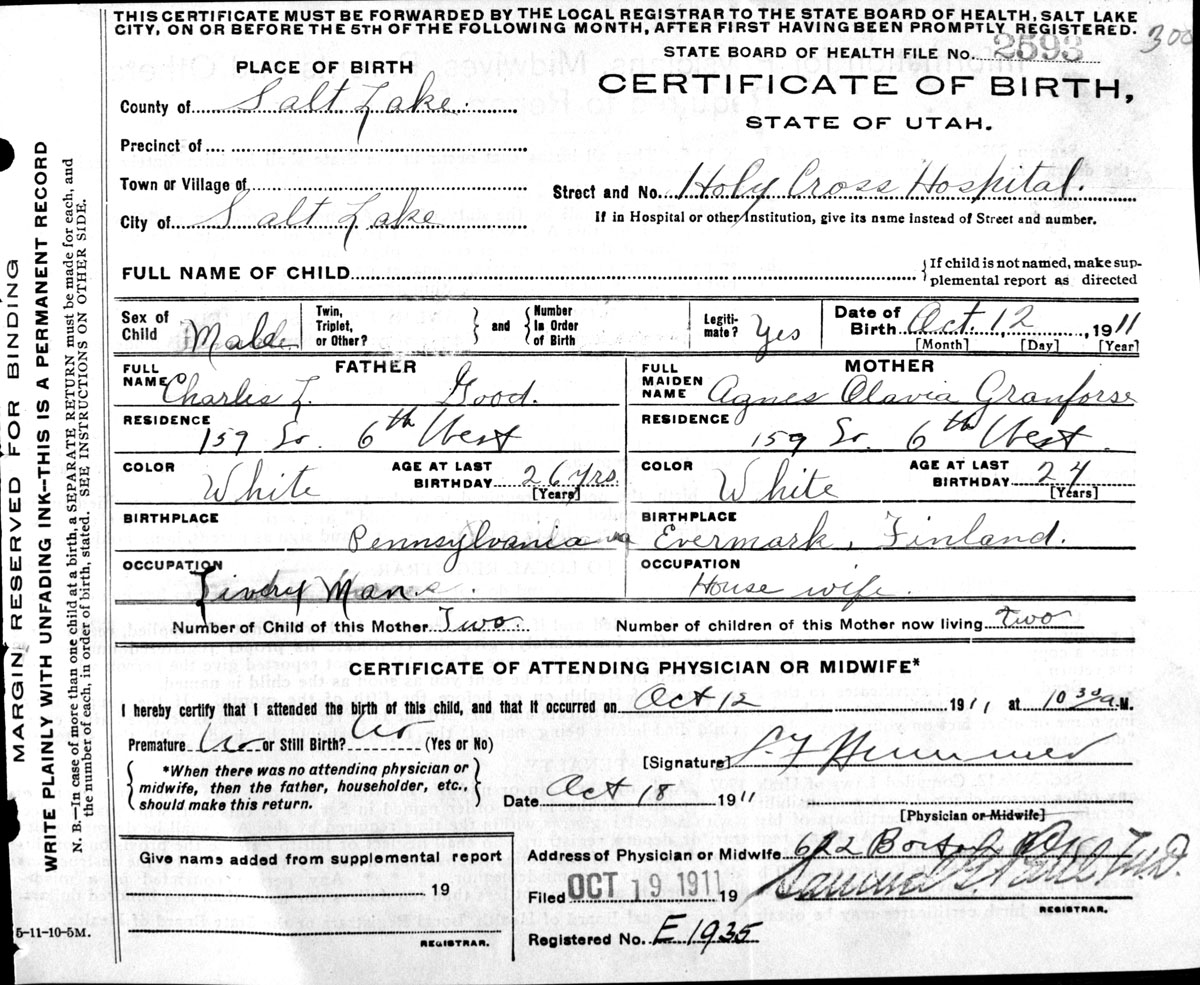 THIS CERTIFICATE MUST BE FORWARDED BY THE LOCAL REGISTRAR TO THE STATE BOARD OF HEALTH, SALT LAKE
CITY, ON OR BEFORE THE 5TH OF THE FOLLOWING MONTH, AFTER FIRST HAVING BEEN PROMPTLY REGISTERED.
300
STATE BOARD OF HEALTH FILE No. 2593
PLACE OF BIRTH
CERTIFICATE OF BIRTH,
STATE OF UTAH.
County of Salt Lake.
Precinct of
Town or Village of
Street and No. Holy Cross Hospital.
City of Salt Lake
If in Hospital or other Institution, give its name instead of Street and number.
FULL NAME OF CHILD
If child is not named, make sup-
plemental report as directed
Sex of Child Male
Twin, Triplet, or Other?
and
Number in Order of Birth
Legiti-mate? Yes
Date of Birth Oct. 12, 1911
[Month] [Day] [Year]
FATHER
MOTHER
FULL NAME Charles L. Good.
FULL MAIDEN NAME Agnes Olavia Granforse
RESIDENCE 159 So. 6th West
RESIDENCE 159 So. 6th West
COLOR White AGE AT LAST BIRTHDAY 26 yrs. [Years]
COLOR White AGE AT LAST BIRTHDAY 24 [Years]
BIRTHPLACE Pennsylvania
BIRTHPLACE Evermark, Finland.
OCCUPATION Man
OCCUPATION House wife.
Number of Child of this Mother Two
Number of children of this Mother now living two
CERTIFICATE OF ATTENDING PHYSICIAN OR MIDWIFE*
I hereby certify that I attended the birth of this child, and that it occurred on Oct 12 1911 at 10 30 a M.
Premature No or Still Birth? No (Yes or No)
[Signature]
*When there was no attending physician or
midwife, then the father, householder, etc.,
should make this return.
Date Oct 18 1911
[Physician or Midwife]
Give name added from supplemental report
19
REGISTRAR.
Address of Physician or Midwife 622
Filed OCT 19 1911 19
REGISTRAR.
Registered No. E 1935
5-11-10-5M.
MARGIN RESERVED FOR BINDING
WRITE PLAINLY WITH UNFADING INK—THIS IS A PERMANENT RECORD
N. B.—In case of more than one child at a birth, a SEPARATE RETURN must be made for each, and
the number of each, in order of birth, stated. SEE INSTRUCTIONS ON OTHER SIDE.